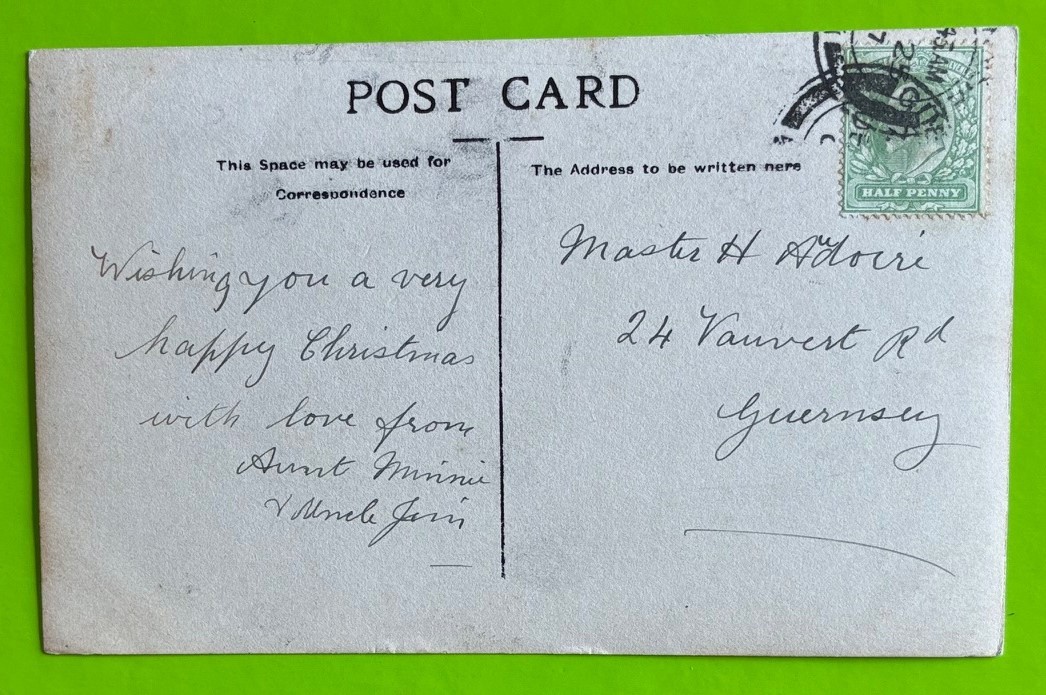 POST CARD
This Space may be used for
Correspondence
Wishing you a very
happy Christmas
with love from
Aunt Minnie
& Uncle Jim
The Address to be written here
Master H
24 Vauvert Rd
Guernsey
HALF PENNY
45AM
25
7